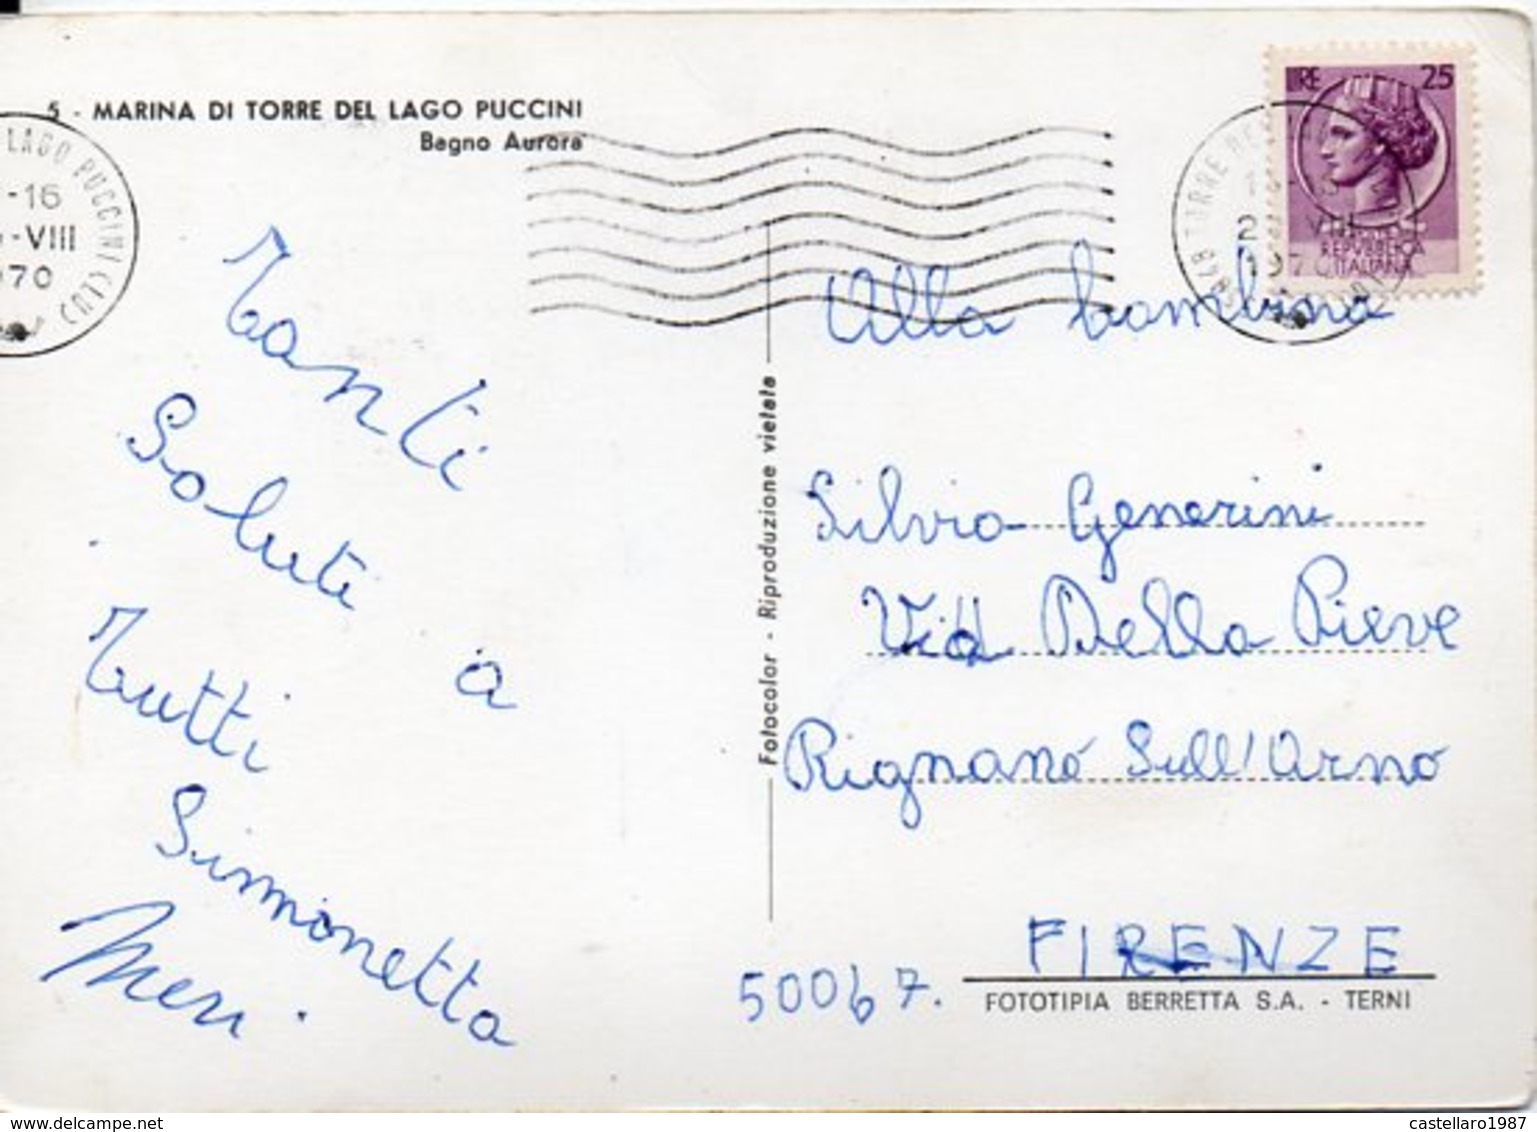 5 - MARINA DI TORRE DEL LAGO PUCCINI
Bagno Aurora
LAGO PUCCINI (LU)
-16
-VIII
970
LIRE 25
REPUBBLICA
ITALIANA
TORRE DE
VIII
197
Tanti
Saluti a
Tutti
Simonetta
Meri.
Fotocolor - Riproduzione vietata
Alla bambina
Silvia Generini
Via Della Pieve
Rignano Sull'Arno
50067.
FIRENZE
FOTOTIPIA BERRETTA S.A. - TERNI
castellaro1987